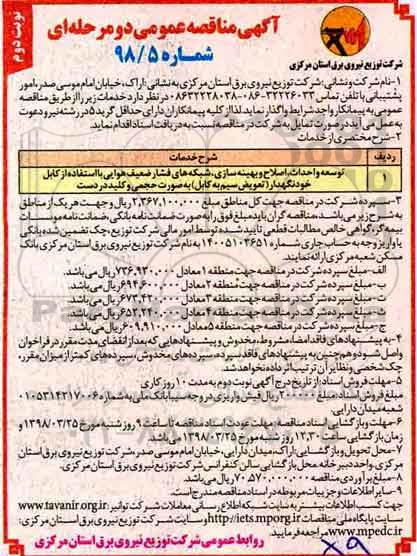 نوبت دوم
آگهی مناقصه عمومی دو مرحله ای
شماره ۹۸/۵
شرکت توزیع نیروی برق استان مرکزی
۱-نام شرکت و نشانی: شرکت توزیع نیروی برق استان مرکزی به نشانی: اراک، خیابان امام موسی صدر، امور
پشتیبانی با تلفن تماس ۳۲۲۲۶۰۳۳-۰۸۶ ۰۸۶۳۲۲۲۸۰۳۸ در نظر دارد خدمات زیر را از طریق مناقصه
عمومی به پیمانکار واجد شرایط واگذار نماید لذا از کلیه پیمانکاران دارای حداقل گرید ۵ در رشته نیرو دعوت
به عمل می آید در صورت تمایل به شرکت در مناقصه نسبت به دریافت اسناد اقدام نماید.
۲-شرح مختصری از خدمات
ردیف شرح خدمات
۱ توسعه و احداث، اصلاح و بهینه سازی، شبکه های فشار ضعیف هوایی با استفاده از کابل
خودنگهدار (تعویض سیم به کابل) به صورت حجمی و کلید در دست
۳-مبلغ سپرده شرکت در مناقصه جهت کل مناطق مبلغ ۲,۳۶۷,۱۰۰,۰۰۰ ریال و جهت هر یک از مناطق
به شرح زیر می باشد، مناقصه گران باید مبلغ فوق را به صورت ضمانت نامه بانکی، ضمانت نامه موسسات
بیمه گر، گواهی خالص مطالبات قطعی تایید شده توسط امور مالی شرکت توزیع، چک تضمین شده بانکی
یا واریز وجه به حساب جاری شماره ۱۴۰۰۵۱۰۴۶۵۱ به نام شرکت توزیع نیروی برق استان مرکزی بانک
مسکن شعبه مرکزی ارائه نمایند.
الف-مبلغ سپرده شرکت در مناقصه جهت منطقه ۱ معادل ۷۳۶,۹۳۰,۰۰۰ ریال می باشد.
ب-مبلغ سپرده شرکت در مناقصه جهت منطقه ۲ معادل ۶۹۴,۶۰۰,۰۰۰ ریال می باشد.
پ-مبلغ سپرده شرکت در مناقصه جهت منطقه ۳ معادل ۶۷۳,۴۲۰,۰۰۰ ریال می باشد.
ت-مبلغ سپرده شرکت در مناقصه جهت منطقه ۴ معادل ۶۵۲,۲۴۰,۰۰۰ ریال می باشد.
ج-مبلغ سپرده شرکت در مناقصه جهت منطقه ۵ معادل ۶۰۹,۹۱۰,۰۰۰ ریال می باشد.
۴-به پیشنهادهای فاقد امضاء، مشروط، مخدوش و پیشنهادهایی که بعد از انقضای مدت مقرر در فراخوان
واصل شود و هم چنین به پیشنهادهای فاقد سپرده، سپرده های مخدوش، سپرده های کمتر از میزان مقرر،
چک شخصی و نظایر آن ترتیب اثر داده نخواهد شد.
۵-مهلت فروش اسناد: از تاریخ درج آگهی نوبت دوم به مدت ۱۰ روز کاری
مبلغ فروش اسناد: مبلغ ۲۰۰,۰۰۰ ریال فیش واریزی در وجه سیبا بانک ملی به شماره ۰۱۰۵۳۱۴۲۱۷۰۰۶
شعبه میدان دارایی.
۶-مهلت و بازگشایی اسناد مناقصه: مهلت عودت اسناد مناقصه تا ساعت ۹ روز شنبه مورخ ۱۳۹۸/۰۳/۲۵ و
زمان بازگشایی ساعت ۱۲,۳۰ روز شنبه مورخ ۱۳۹۸/۰۳/۲۵ می باشد.
۷-محل تحویل و بازگشایی: اراک، میدان دارایی، خیابان امام موسی صدر، شرکت توزیع نیروی برق استان
مرکزی، واحد دبیرخانه. محل بازگشایی سالن کنفرانس شرکت توزیع نیروی برق استان مرکزی.
۸-مبلغ برآوردی مناقصه ۷۰,۵۷۰,۰۰۰,۰۰۰ ریال می باشد.
۹-سایر اطلاعات و جزییات مربوطه در اسناد مناقصه مندرج است.
جهت کسب اطلاعات بیشتر به سایت شبکه اطلاع رسانی معاملات شرکت توانیر: www.tavanir.org.ir
سایت پایگاه ملی مناقصات http://iets.mporg.ir و سایت شرکت توزیع نیروی برق استان مرکزی:
www.mpedc.ir مراجعه فرمایید.
روابط عمومی شرکت توزیع نیروی برق استان مرکزی